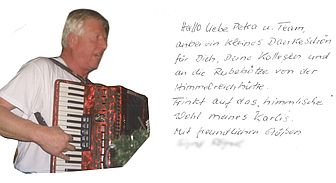 Hallo liebe Petra u. Team,
anbei ein kleines Dankeschön
für Dich, Deine Kollegen und
an die Rubehütze von der
Himmelreichhütte.
Trinkt auf das "himmlische"
Wohl meines Karlis.
Mit freundlichen Grüßen